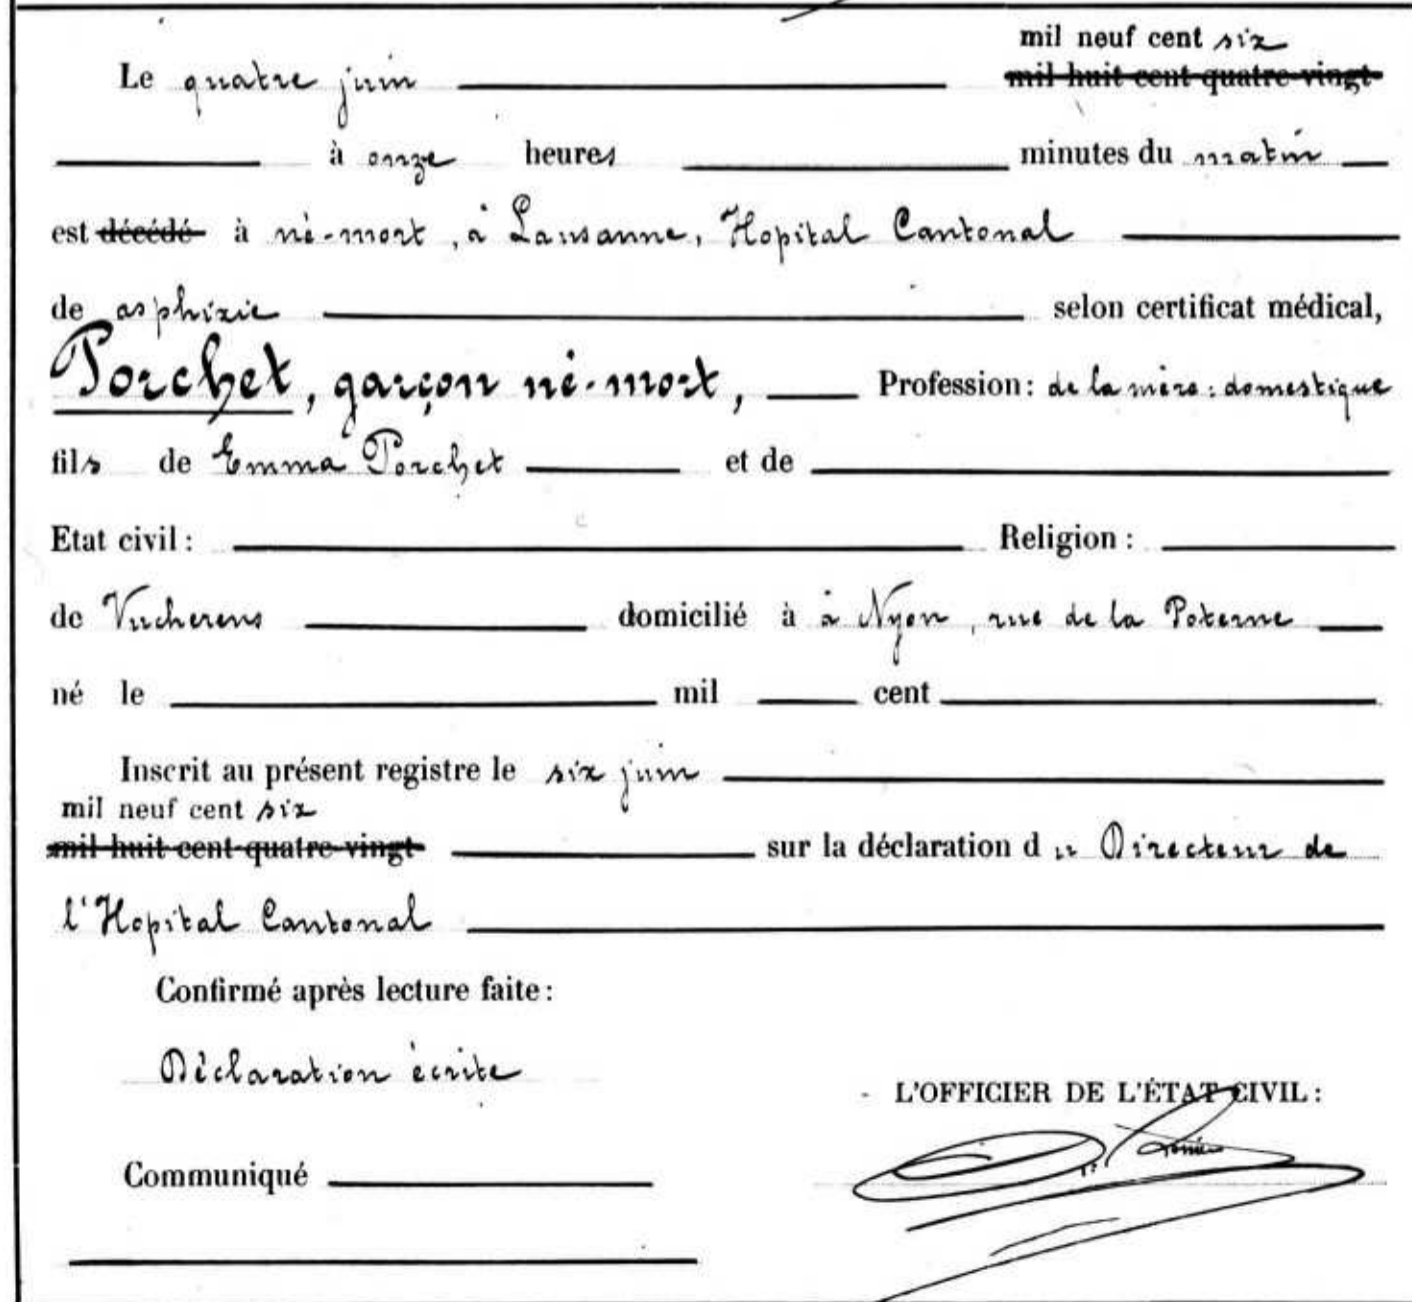 mil neuf cent six
Le quatre juin mil huit cent quatre-vingt
à onze heures minutes du matin
est décédé à né-mort, à Lausanne, Hopital Cantonal
de asphixie selon certificat médical,
Porchet, garçon né-mort, Profession: de la mère: domestique
fils de Emma Porchet et de
Etat civil: Religion:
de Vucherens domicilié à à Nyon, rue de la Poterne
né le mil cent
Inscrit au présent registre le six juin
mil neuf cent six
mil huit cent quatre-vingt sur la déclaration du Directeur de
l'Hopital Cantonal
Confirmé après lecture faite:
Déclaration écrite
L'OFFICIER DE L'ÉTAT CIVIL:
Communiqué